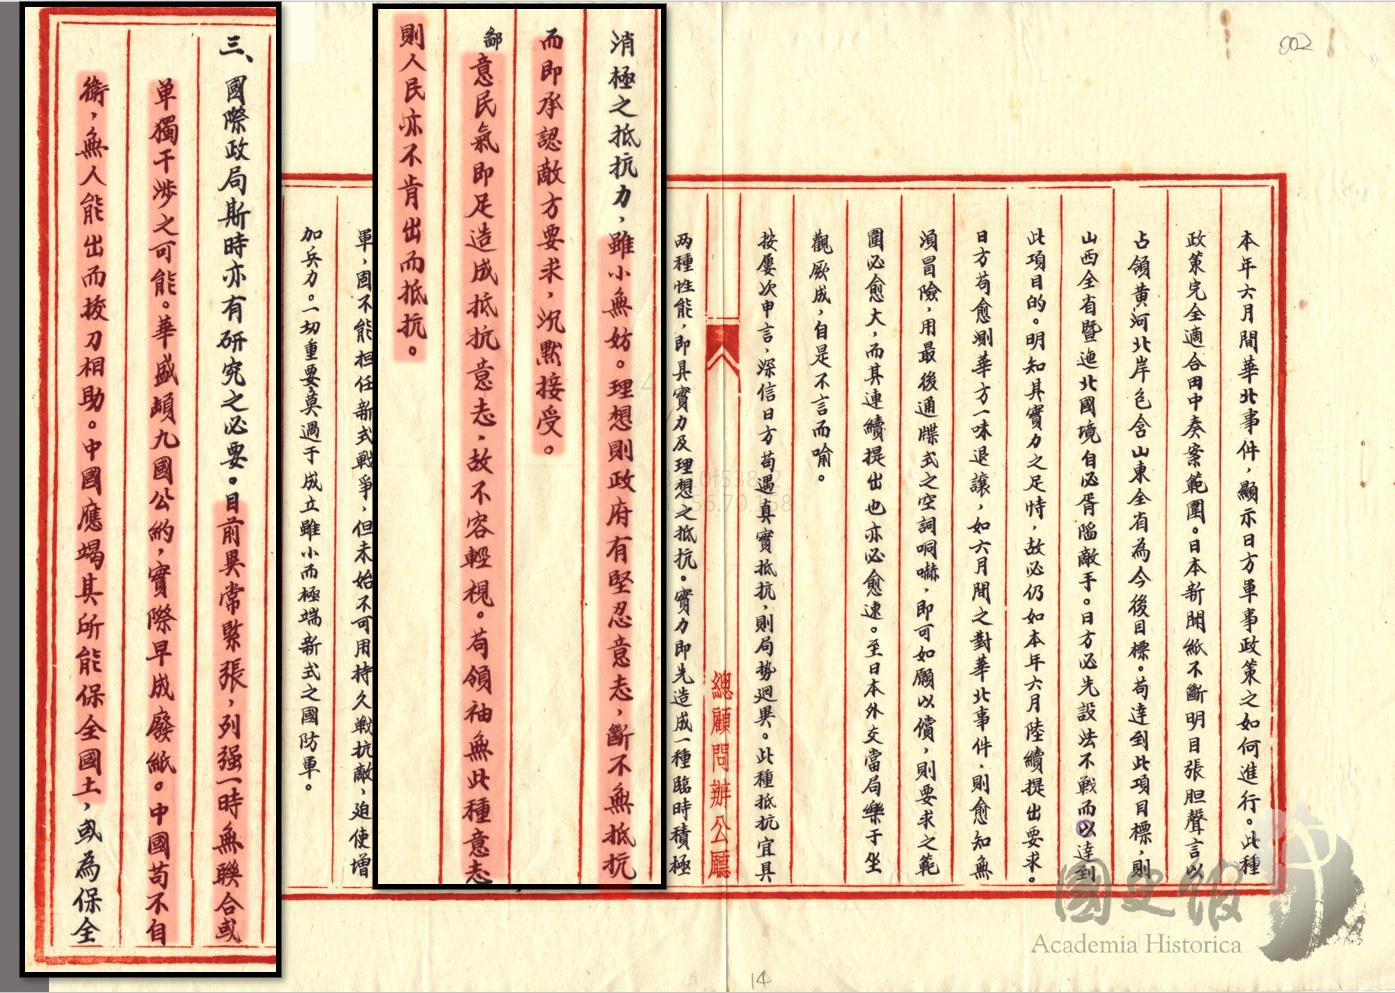 002
本年六月間華北事件，顯示日方軍事政策之如何進行。此種
政策完全適合田中奏案範圍。日本新聞紙不斷明目張胆聲言以
占領黃河北岸包含山東全省為今後目標。苟達到此項目標，則
山西全省暨迤北國境自必胥陷敵手。日方必先設法不戰而以達到
此項目的。明知其實力之足恃，故必仍如本年六月陸續提出要求。
日方苟愈測華方一味退讓，如六月間之對華北事件，則愈知無
須冒險，用最後通牒式之空詞哃嚇，即可如願以償，則要求之範
圍必愈大，而其連續提出也亦必愈速。至日本外交當局樂于坐
觀厥成，自是不言而喻。
按屢次申言，深信日方苟遇真實抵抗，則局勢迥異。此種抵抗宜具
總顧問辦公廳
两種性能，即具實力及理想之抵抗。實力即先造成一種臨時積極
消極之抵抗力，雖小無妨。理想則政府有堅忍意志，斷不無抵抗
而即承認敵方要求，沉默接受。
鄙意民氣即足造成抵抗意志，故不容輕視。苟領袖無此種意志
則人民亦不肯出而抵抗。
軍，固不能担任新式戰爭，但未始不可用持久戰抗敵，迫使增
加兵力。一切重要莫過于成立雖小而極端新式之國防軍。
三、國際政局斯時亦有研究之必要。目前異常緊張，列强一時無聯合或
单獨干涉之可能。華盛頓九國公約，實際早成廢紙。中國苟不自
衛，無人能出而拔刀相助。中國應竭其所能保全國土，或為保全
14
國史館
Academia Historica